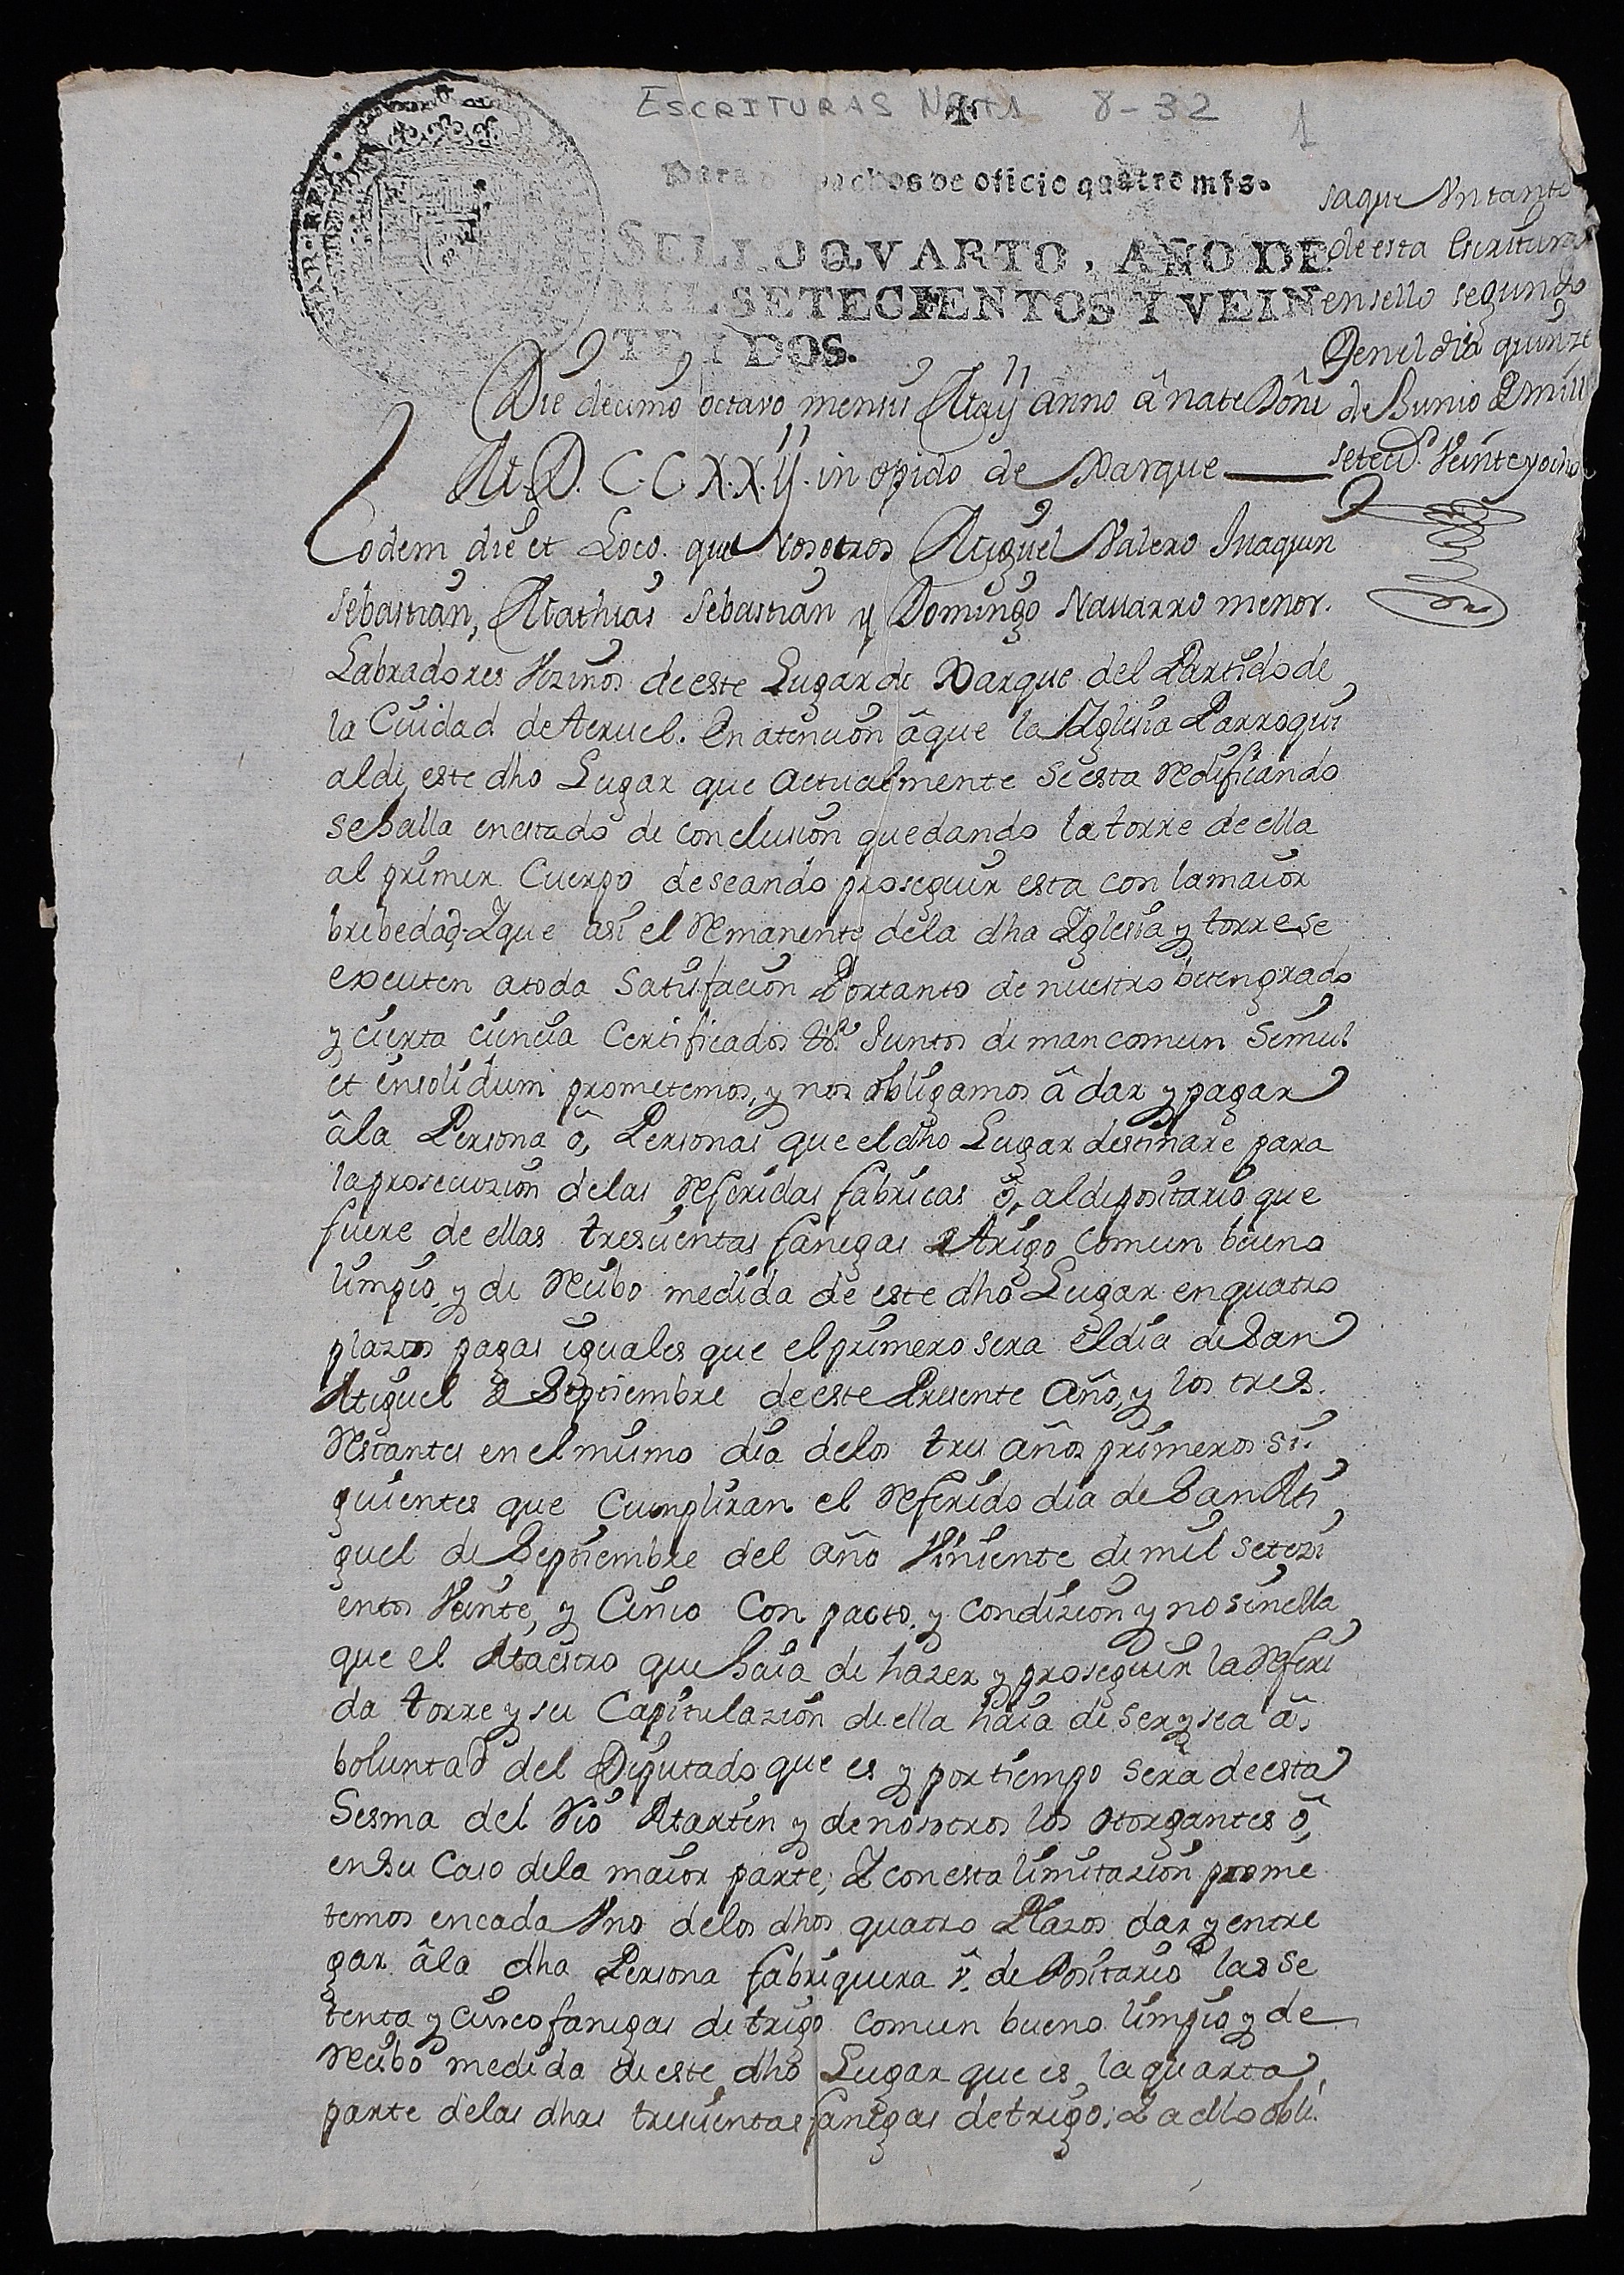 ESCRITURAS NOT1 8-32 1
Para despachos de oficio quatro mrs.
SELLO QVARTO, AÑO DE
MIL SETECIENTOS Y VEIN
TE Y DOS.
saque Vn tanto
de esta Escritura
en sello segundo
en el dia quinze
de Iunio Emill
seteci.s Veinte y ocho
Die decimo octavo mensis Maij anno â nate Dôni
M.D.C.C.X.X.ij. in opido de Xarque
Eodem die et Loco. que Nosotros Miguel Valero Juaquin
Sebastian, Mathias Sebastian y Domingo Nauarro menor.
Labradores Vezinos de este Lugar de Xarque del Partido de
la Ciudad de Teruel. En atencion âque la Yglesia Parroqui
al de este dho Lugar que actualmente se esta Redificando
se halla en estado de conclusion quedando la torre de ella
al primer Cuerpo deseando proseguir esta con la maior
brebedad Y que asi el Remanente de la dha Yglesia y torre se
executen a toda Satisfacion Portanto de nuestro buen grado
y cierta ciencia Certificados &ª Juntos de mancomun Simul
et insolidum prometemos, y nos obligamos â dar y pagar
âla Persona ô, Personas que el dho Lugar destinare para
la prosecuzion de las Referidas fabricas ô, al depositario que
fuere de ellas trescientas fanegas de trigo comun bueno
limpio, y de Recibo medida de este dho Lugar en quatro
plazos pagas iguales que el primero sera el dia de San
Miguel de Septiembre de este Presente Año, y los tres.
Restantes en el mismo dia de los tres años primeros si.
guientes que Cumpliran el Referido dia de San Mi
guel de Septiembre del año Viniente de mil setezi
entos Veinte, y Cinco Con pacto, y condizion y no sin ella
que el Maestro que haia de hazer y proseguir la Referi
da torre y su Capitulazion de ella haia de ser y sea â,
boluntad del Diputado que es y por tiempo sera de esta
Sesma del Rio Martin y de nosotros los otorgantes ô,
en su Caso de la maior parte; Y con esta limitazion prome
temos en cada Vno de los dhos quatro Plazos dar y entre
gar âla dha Persona fabriquera v. de Positario las se
tenta y cinco fanegas de trigo comun bueno limpio y de
Recibo medida de este dho Lugar que es la quarta
parte de las dhas trescientas fanegas de trigo; Y a ello obli.